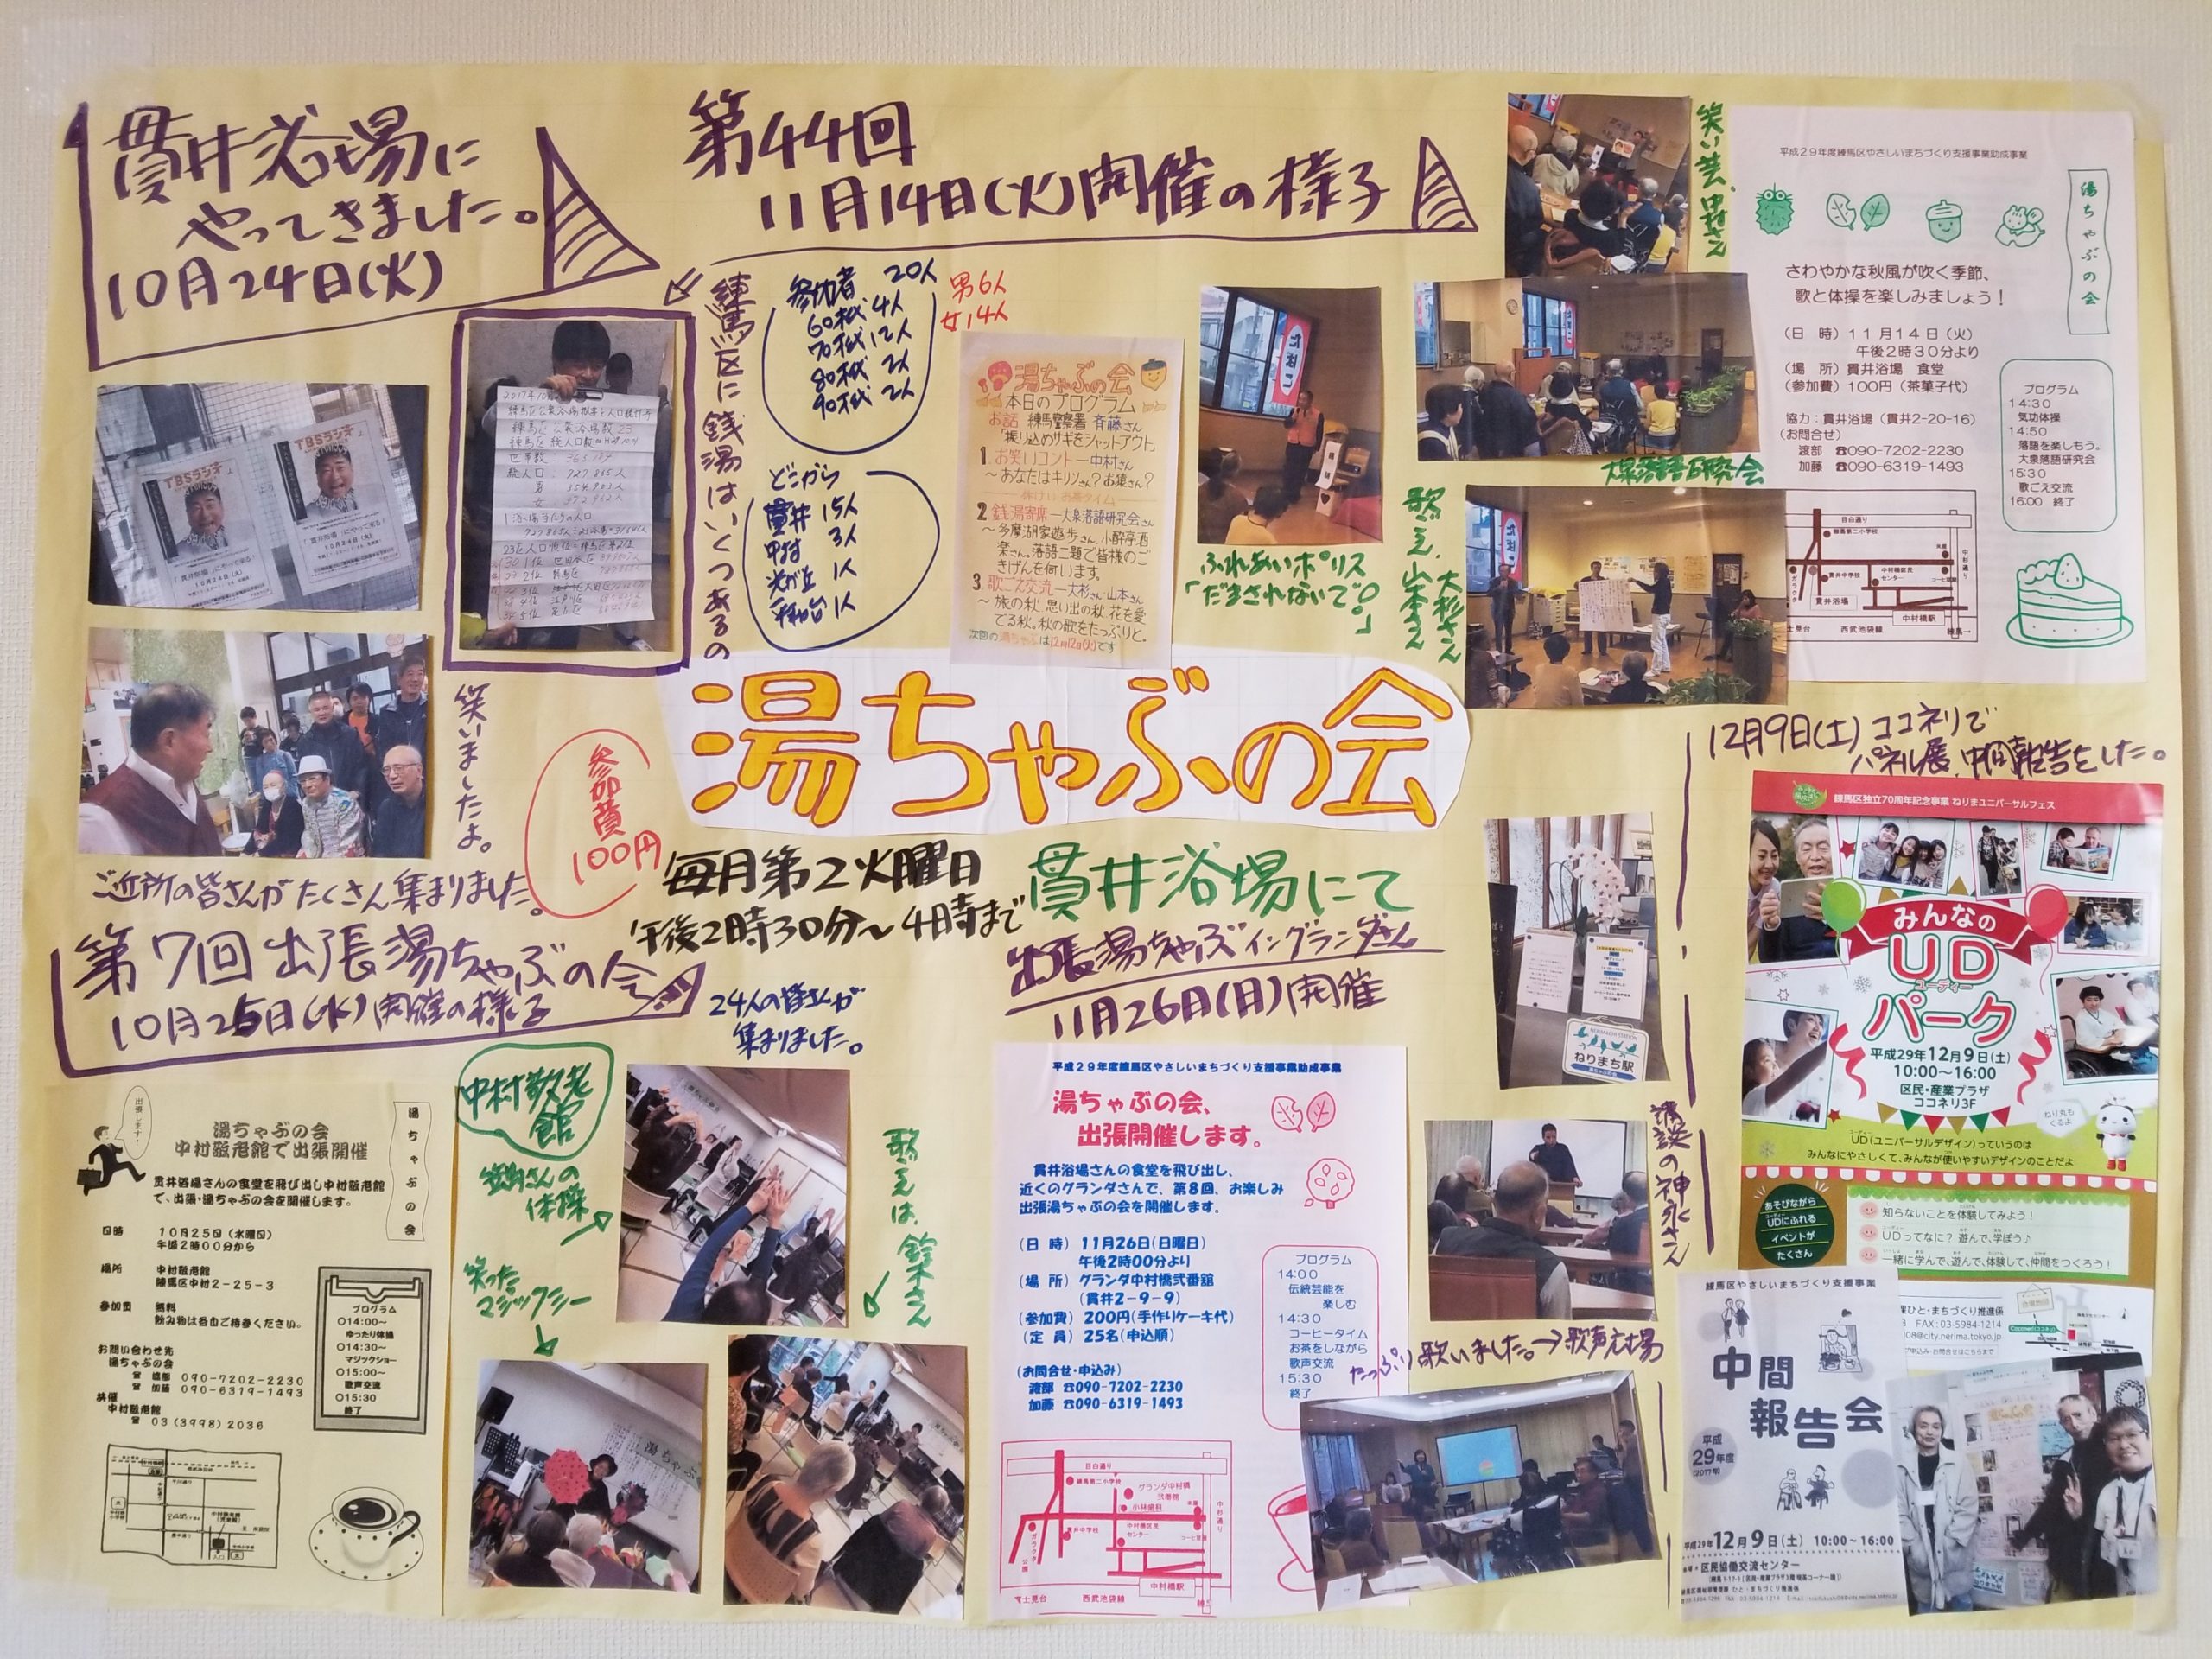 貫井浴場に
やってきました。
10月24日(火)
第44回
11月14日(火)開催の様子
練馬区に銭湯はいくつあるの
参加者 20人
60才代 4人
70才代 12人
80才代 2人
90才代 2人
男6人
女14人
どこから
貫井 15人
中村 3人
光が丘 1人
平和台 1人
TBSラジオ
TBSラジオ
「貫井浴場」にやって来る!
10月24日(火)
湯ちゃぶの会
本日のプログラム
お話 練馬警察署 斉藤さん
「振り込めサギをシャットアウト」
1 お笑いコント―中村さん
～あなたはキリンさん?お猿さん?
2 銭湯寄席―大泉落語研究会さん
～多摩湖家遊歩さん、小酔亭酒
楽さん。落語二題で皆様のご
きげんを伺います。
3. 歌ごえ交流―大杉さん山本さん
～旅の秋、思い出の秋、花を愛
でる秋。秋の歌をたっぷりと。
次回の湯ちゃぶは12月12日(火)です
たばこ
ふれあいポリス
「だまされないで!」
笑い芸、中村さん
大泉落語研究会
歌ごえ、大杉さん
山本さん
平成29年度練馬区やさしいまちづくり支援事業助成事業
湯ちゃぶの会
さわやかな秋風が吹く季節、
歌と体操を楽しみましょう!
(日 時) 11月14日(火)
午後2時30分より
(場 所) 貫井浴場 食堂
(参加費) 100円(茶菓子代)
協力:貫井浴場(貫井2-20-16)
(お問合せ)
渡部 ☎090-7202-2230
加藤 ☎090-6319-1493
プログラム
14:30
気功体操
14:50
落語を楽しもう。
大泉落語研究会
15:30
歌ごえ交流
16:00 終了
目白通り
練馬第二小学校
貫井中学校
中村橋区民
センター
貫井浴場
中村橋駅
中杉通り
士見台 西武池袋線 練馬→
笑いましたよ。
ご近所の皆さんがたくさん集まりました。
湯ちゃぶの会
参加費
100円
毎月第2火曜日
午後2時30分～4時まで
貫井浴場にて
第7回出張湯ちゃぶの会
10月25日(水)開催の様子
24人の皆さんが
集まりました。
出張湯ちゃぶイングランダさん
11月26日(日)開催
12月9日(土)ココネリで
パネル展、中間報告をした。
出張します!
湯ちゃぶの会
湯ちゃぶの会
中村敬老館で出張開催
貫井浴場さんの食堂を飛び出し中村敬老館
で、出張・湯ちゃぶの会を開催します。
日時 10月25日(水曜日)
午後2時00分から
場所 中村敬老館
練馬区中村2-25-3
参加費 無料
飲み物は各自ご持参ください。
お問い合わせ先
湯ちゃぶの会
☎ 渡部 090-7202-2230
☎ 加藤 090-6319-1493
共催
中村敬老館
☎ 03(3998)2036
プログラム
○14:00～
ゆったり体操
○14:30～
マジックショー
○15:00～
歌声交流
○15:30
終了
中村敬老館
体操
笑った
マジックシー
歌ごえは、鈴木さん
平成29年度練馬区やさしいまちづくり支援事業助成事業
湯ちゃぶの会、
出張開催します。
貫井浴場さんの食堂を飛び出し、
近くのグランダさんで、第8回、お楽しみ
出張湯ちゃぶの会を開催します。
(日 時) 11月26日(日曜日)
午後2時00分より
(場 所) グランダ中村橋弐番館
(貫井2-9-9)
(参加費) 200円(手作りケーキ代)
(定 員) 25名(申込順)
(お問合せ・申込み)
渡部 ☎090-7202-2230
加藤 ☎090-6319-1493
プログラム
14:00
伝統芸能を
楽しむ
14:30
コーヒータイム
お茶をしながら
歌声交流
15:30
終了
目白通り
練馬第二小学校
グランダ中村橋
弐番館
小林歯科
貫井中学校
中村橋区民
センター
中杉通り
中村橋駅
士見台 西武池袋線
ねりまち駅
講談の神永さん
たっぷり歌いました。→歌声広場
練馬区独立70周年記念事業 ねりまユニバーサルフェス
みんなの
UD
ユーディー
パーク
平成29年12月9日(土)
10:00～16:00
区民・産業プラザ
ココネリ3F
ねり丸も
くるよ
UD(ユニバーサルデザイン)っていうのは
みんなにやさしくて、みんなが使いやすいデザインのことだよ
あそびながら
UDにふれる
イベントが
たくさん
知らないことを体験してみよう!
UDってなに? 遊んで、学ぼう♪
一緒に学んで、遊んで、体験して、仲間をつくろう!
ひと・まちづくり推進係
FAX:03-5984-1214
08@city.nerima.tokyo.jp
練馬区やさしいまちづくり支援事業
中間
報告会
平成
29年度
(2017年)
平成29年12月9日(土) 10:00～16:00
区民協働交流センター